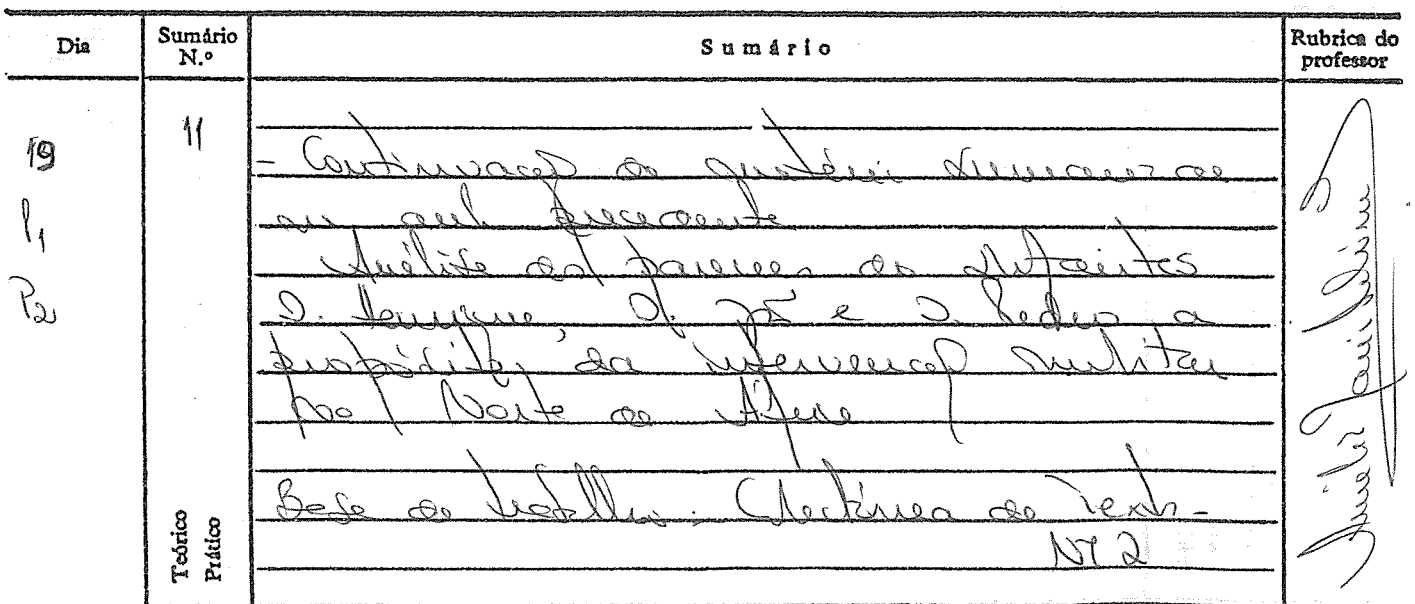 Dia
Sumário N.º
Sumário
Rubrica do professor
19
P1
P2
11
- Continuação da questão
na aula precedente
Análise dos pareceres dos Infantes
D. Henrique, D. João e D. Pedro a
propósito da intervenção militar
no Norte de África
Base de trabalho: Colectânea de Textos
Nº 2
Teórico
Prático